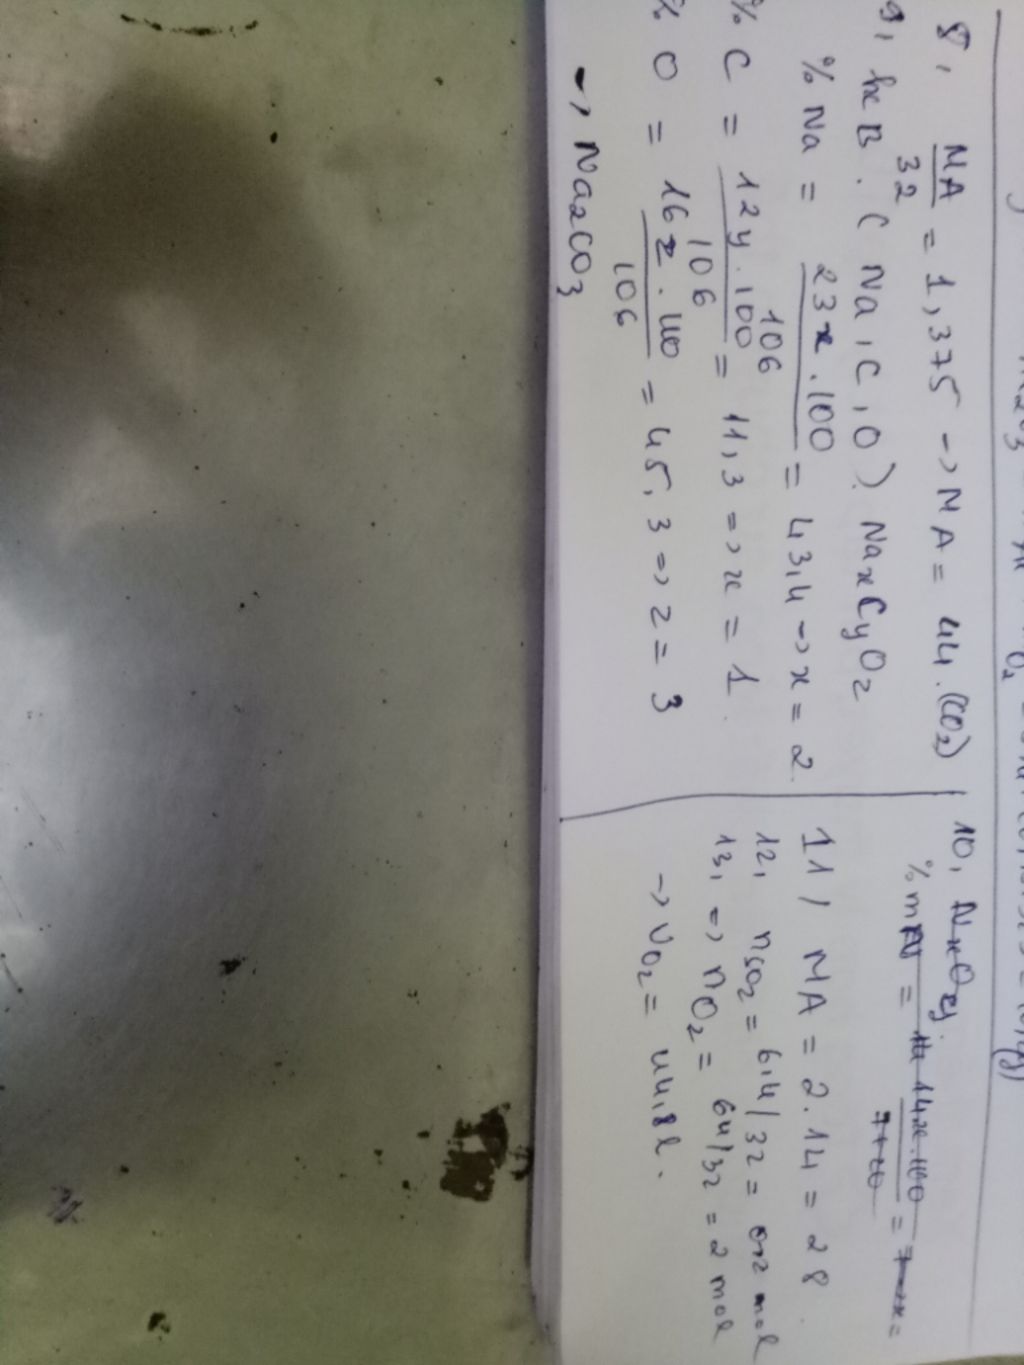 8, MA/32 = 1,375 -> MA = 44. (CO2)
9, hc B. ( Na, C, O). NaxCyOz
% Na = 23x.100/106 = 43,4 -> x = 2.
% C = 12y.100/106 = 11,3 => x = 1
% O = 16z.100/106 = 45,3 => z = 3
-> Na2CO3
10, NxOy.
%mN = 14x.100
11, MA = 2.14 = 28.
12, nSO2 = 6,4/32 = 0,2 mol
13, => nO2 = 64/32 = 2 mol
-> VO2 = 44,8 l.